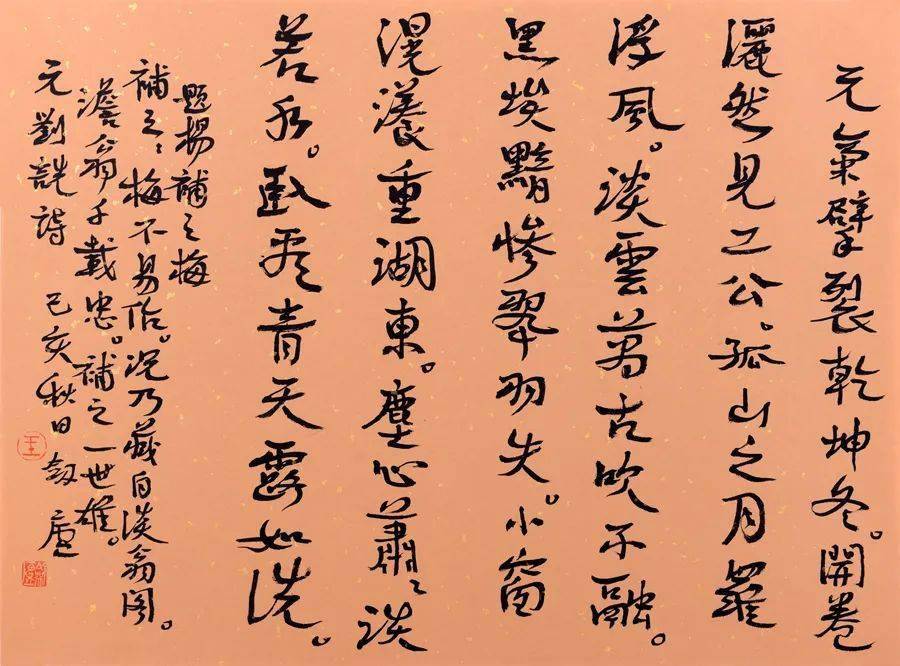 元氣擘裂乾坤冬。開卷
灑然見二公。孤山之月羅
浮風。淡雲萬古吹不融。
黑埃黯慘翠羽失。小窗
滉瀁重湖東。塵心蕭〻淡
若水。卧看青天露如洗。
題楊補之梅
補之〻梅不易作。況乃藏自淡翁閣。
澹翁千載忠。補之一世雄。
元劉詵詩 己亥秋日 廬
王